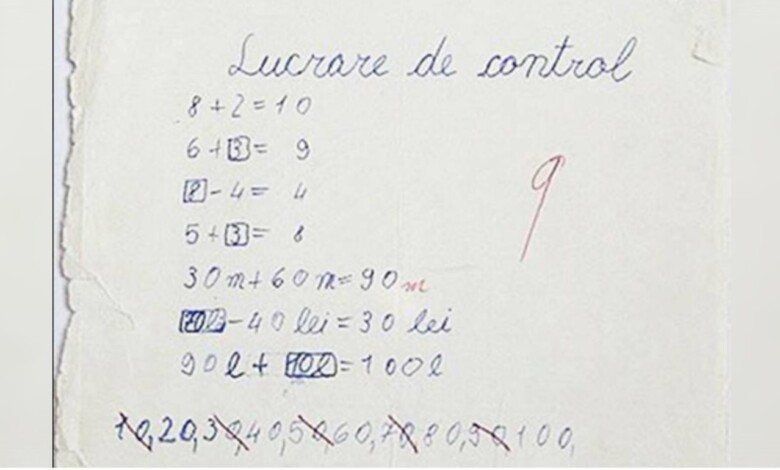 Lucrare de control
8 + 2 = 10
6 + 3 = 9
8 - 4 = 4
5 + 3 = 8
9
30 m + 60 m = 90 m
70 l - 40 lei = 30 lei
90 l + 10 l = 100 l
10, 20, 30, 40, 50, 60, 70, 80, 90, 100,